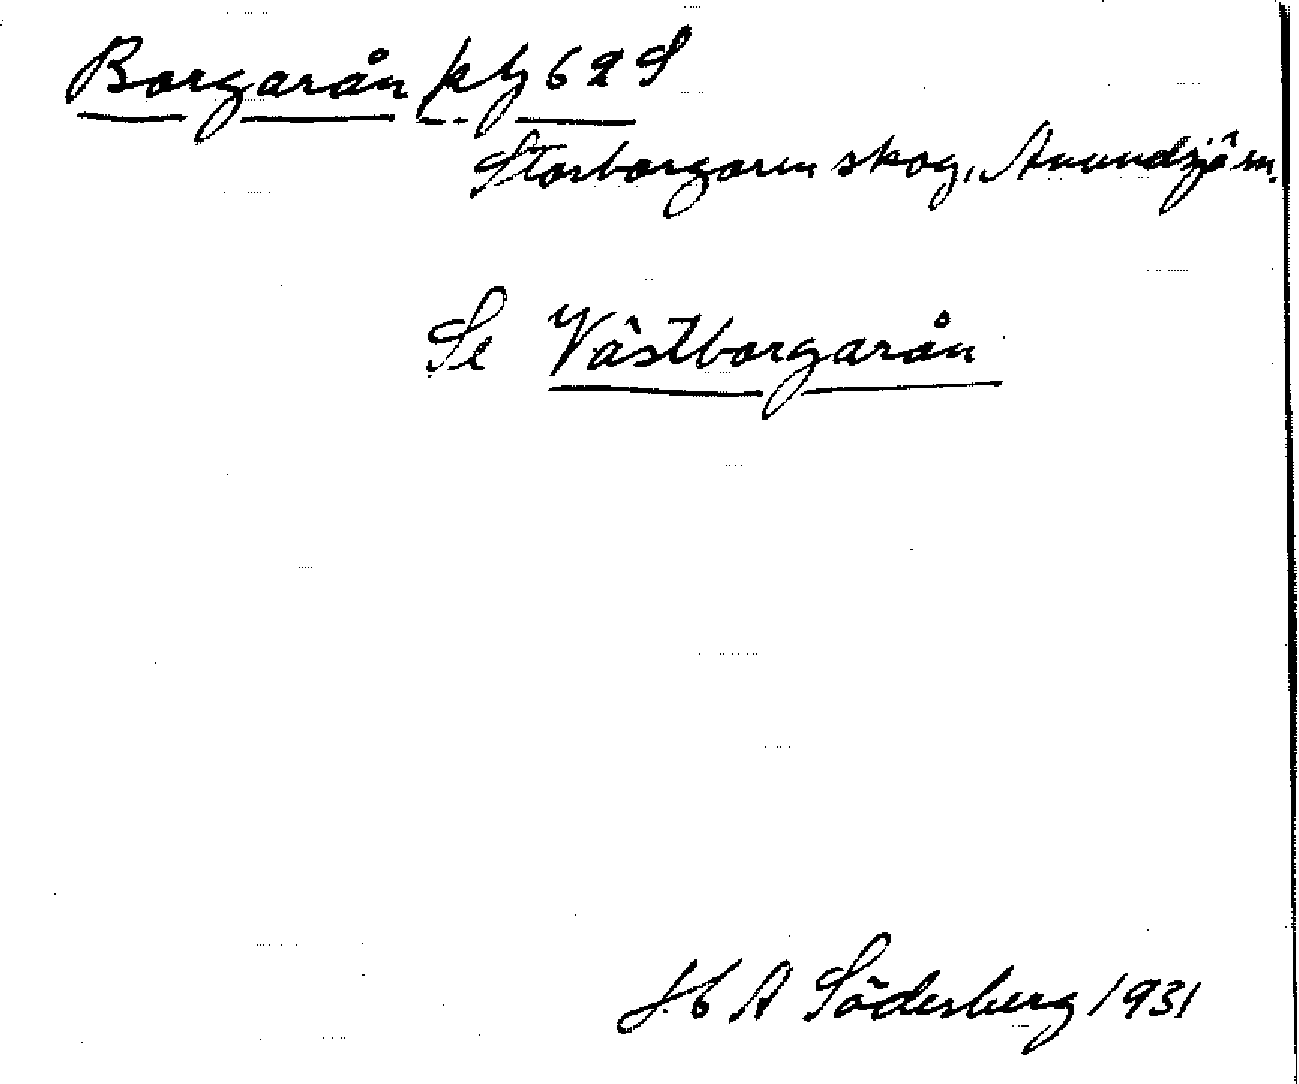 Borgarån kbl 62 S
Storborgaren skog, Anundsjö sn.
Se Västborgarån
H A Söderberg 1931